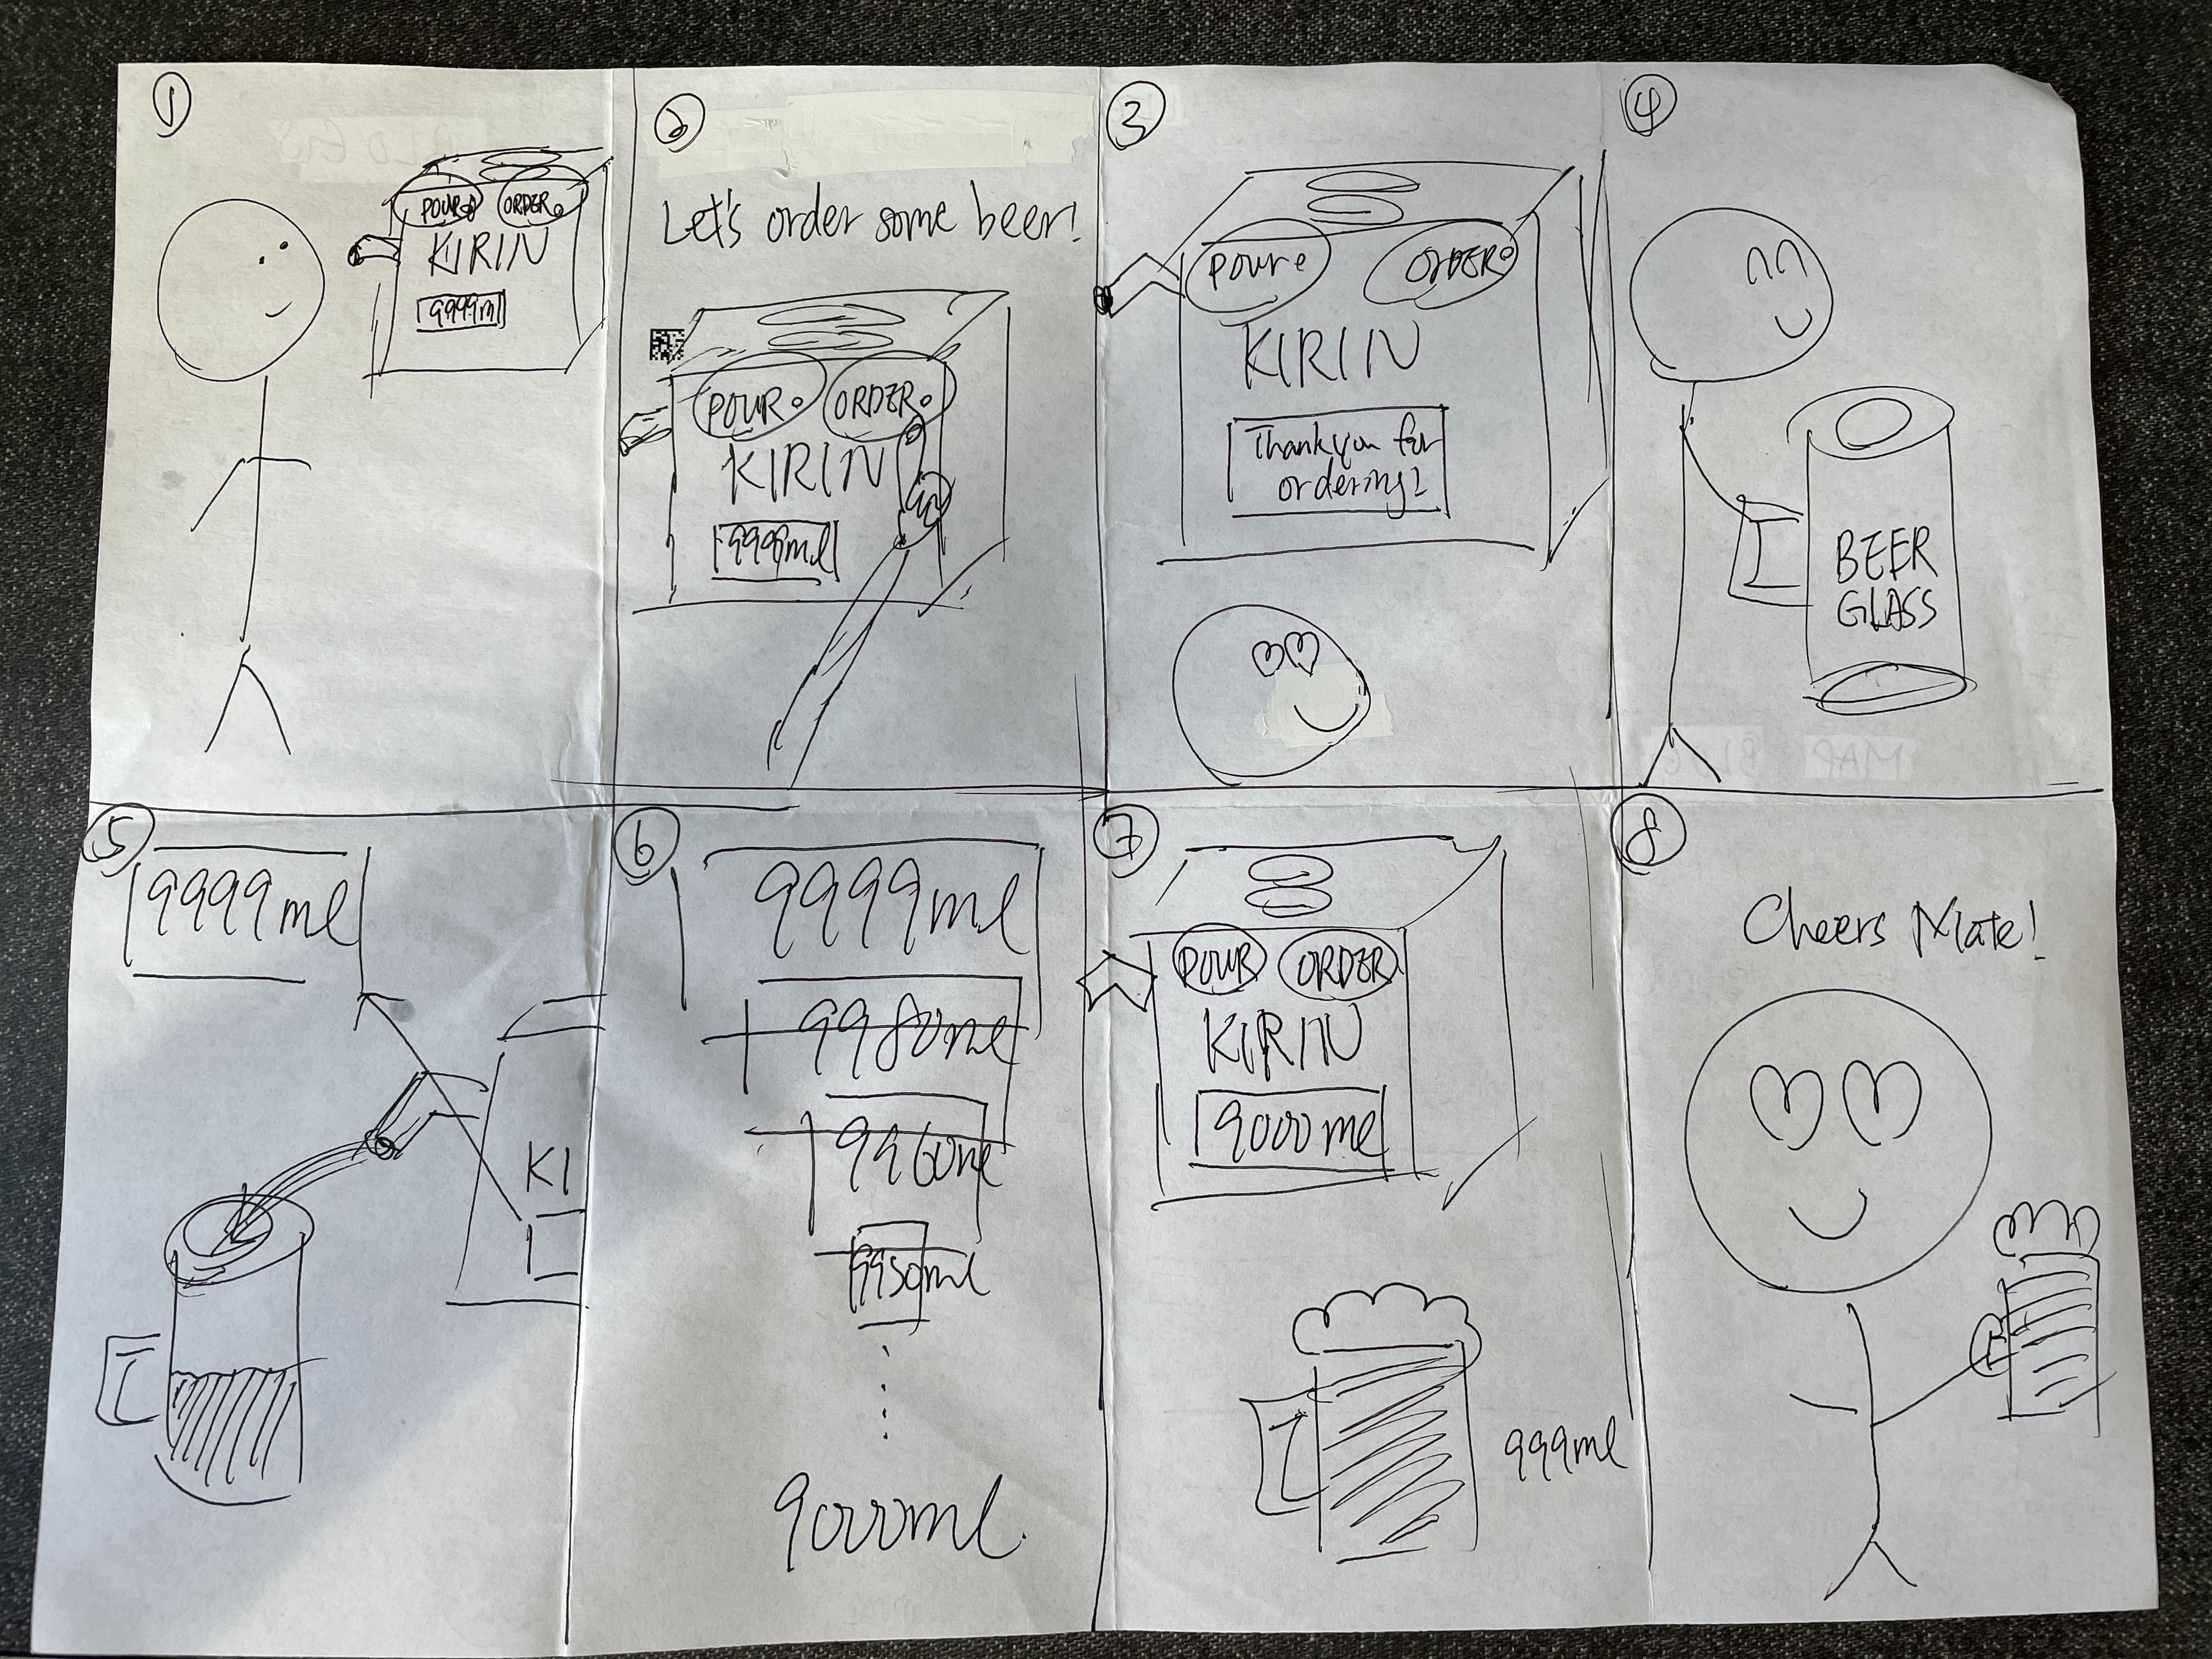 1
POUR ORDER
KIRIN
9999ml
2
Let's order some beer!
POUR ORDER
KIRIN
9999ml
3
Pour ORDER
KIRIN
Thank you for
ordering!
4
BEER
GLASS
5
9999ml
KI
6
9999ml
9980ml
9960ml
9950ml
9000ml
7
POUR ORDER
KIRIN
9000ml
999ml
8
Cheers Mate!